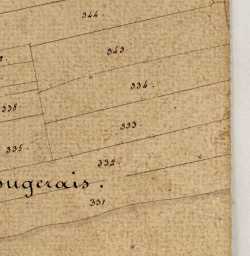 344.
343
334.
338
333
335.
332.
ougerais.
331